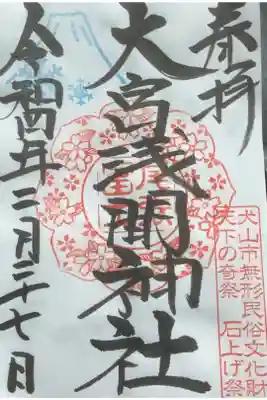 奉拝
大宮浅間神社
令和四年二月二十七日
犬山市無形民俗文化財
天下の奇祭 石上げ祭